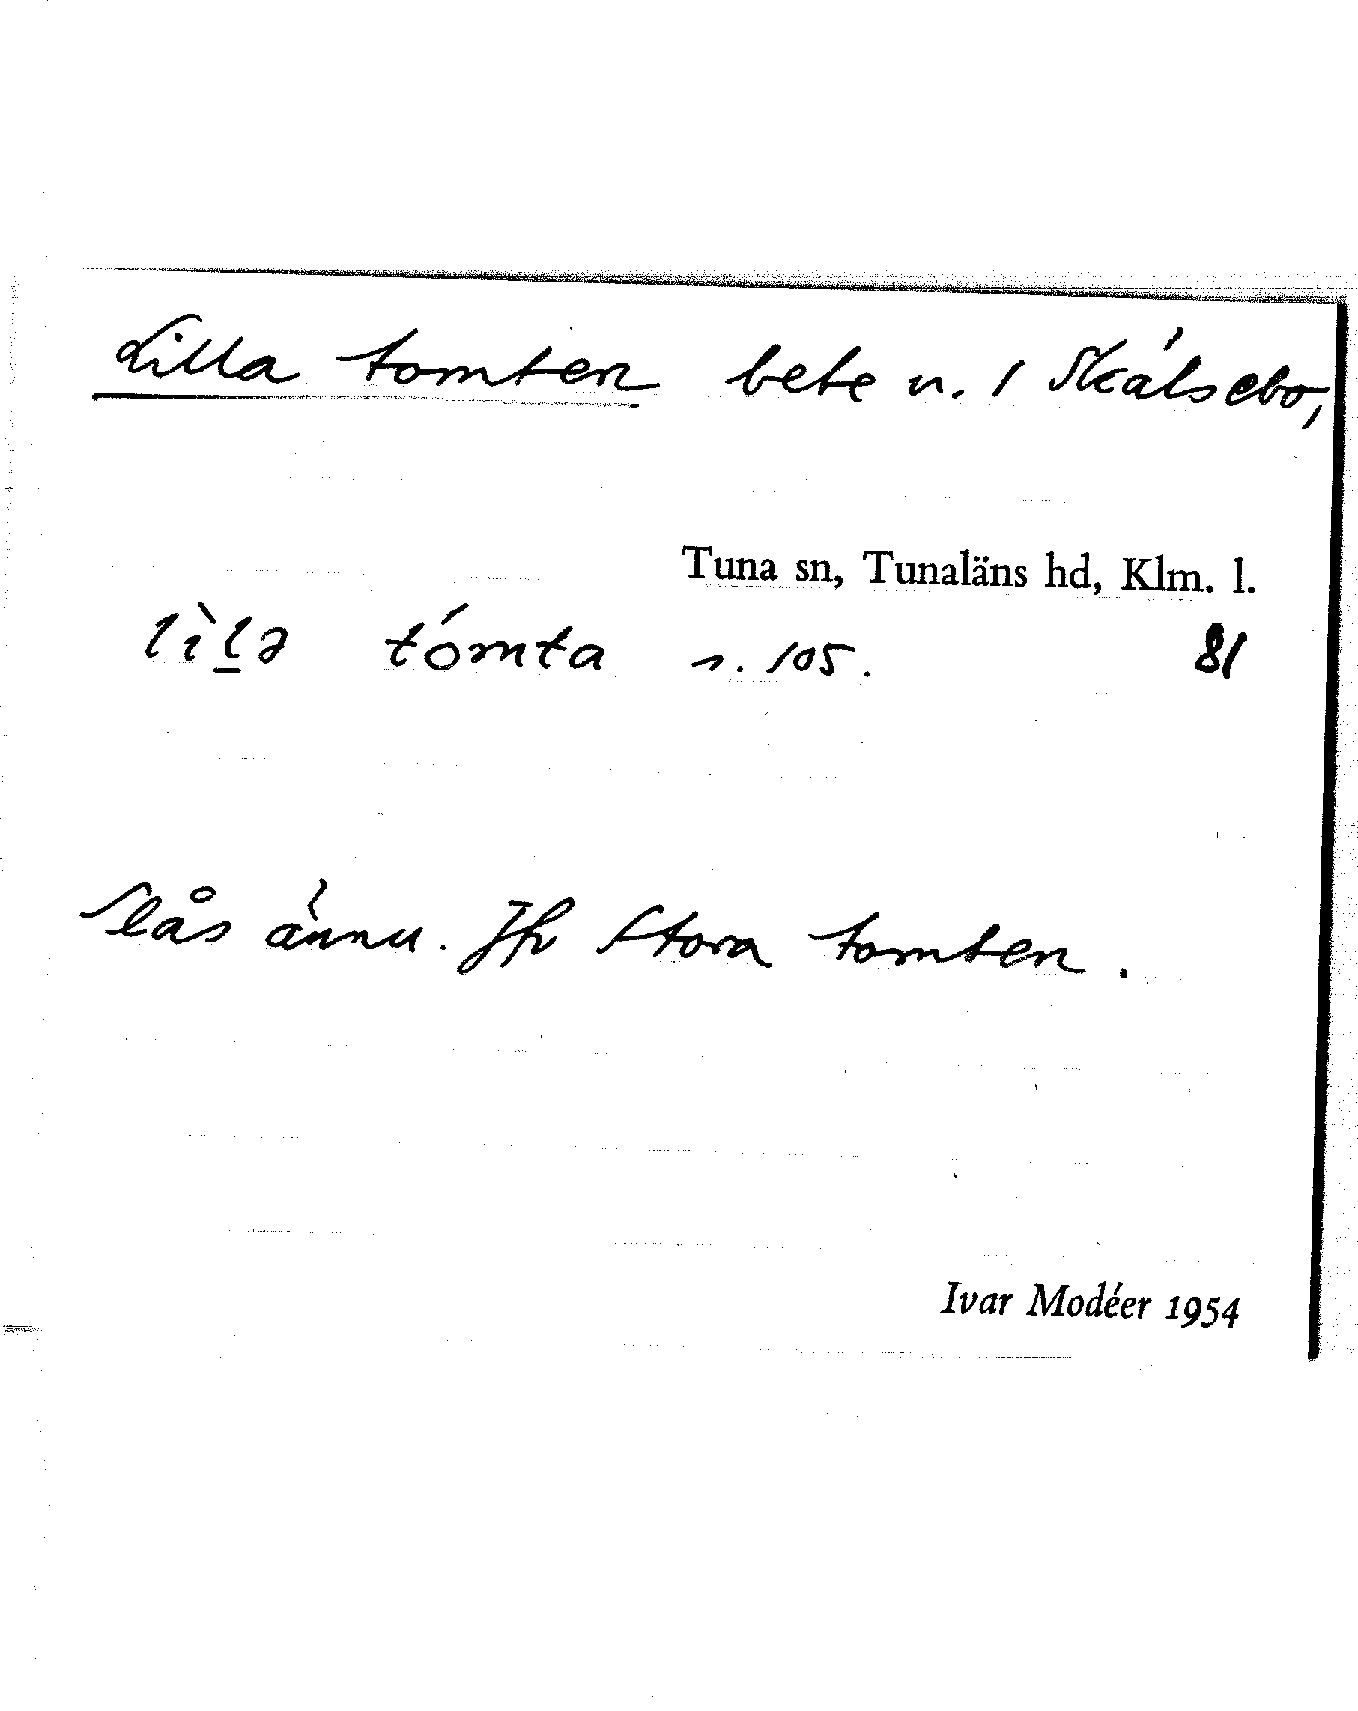 Lilla tomten bete u. 1 Skälsebo,
Tuna sn, Tunaläns hd, Klm. l.
lìlə tómta n. 105. 81
Slås ännu. Jfr Stora tomten.
Ivar Modéer 1954